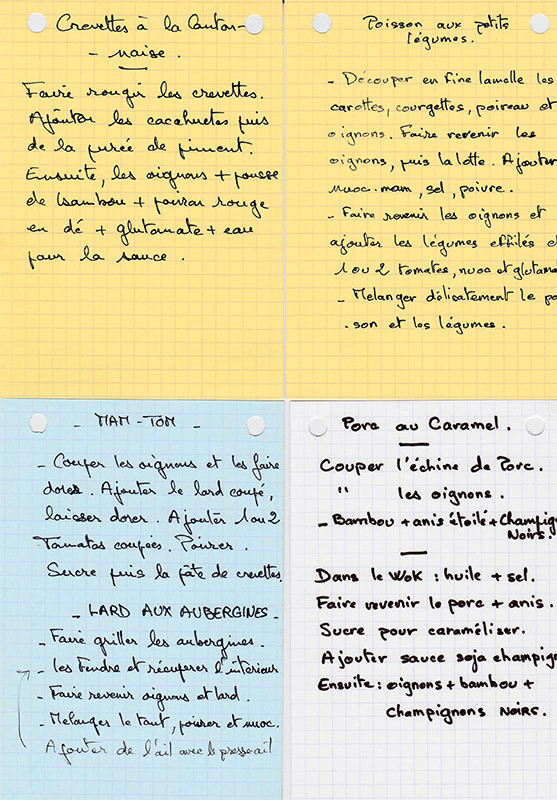 Crevettes à la Canton-
- naise.
Faire rougir les crevettes.
Ajouter les cacahuetes puis
de la purée de piment.
Ensuite, les oignons + pousse
de bambou + poivron rouge
en dé + glutamate + eau
pour la sauce.
Poisson aux petits
légumes.
- Découper en fine lamelle les
carottes, courgettes, poireau et
oignons. Faire revenir les
oignons, puis la lotte. Ajouter
nuoc-mam, sel, poivre.
- Faire revenir les oignons et
ajouter les légumes effilés et
1 ou 2 tomates, nuoc et glutam
- Melanger délicatement le po
.son et les légumes.
- MAM-TOM -
- Couper les oignons et les faire
dorer. Ajouter le lard coupé,
laisser dorer. Ajouter 1 ou 2
Tomates coupées. Poivrer.
Sucre puis la pâte de crevettes.
- LARD AUX AUBERGINES -
- Faire griller les aubergines.
- les fendre et récuperer l'interieur
- Faire revenir oignons et lard.
- Melanger le tout, poivrer et nuoc.
Ajouter de l'ail avec le presse ail
Porc au Caramel.
Couper l'échine de Porc.
" les oignons.
- Bambou + anis étoilé + Champig
Noirs.
Dans le Wok : huile + sel.
Faire revenir le porc + anis.
Sucre pour caraméliser.
Ajouter sauce soja champig
Ensuite : oignons + bambou +
Champignons Noirs.